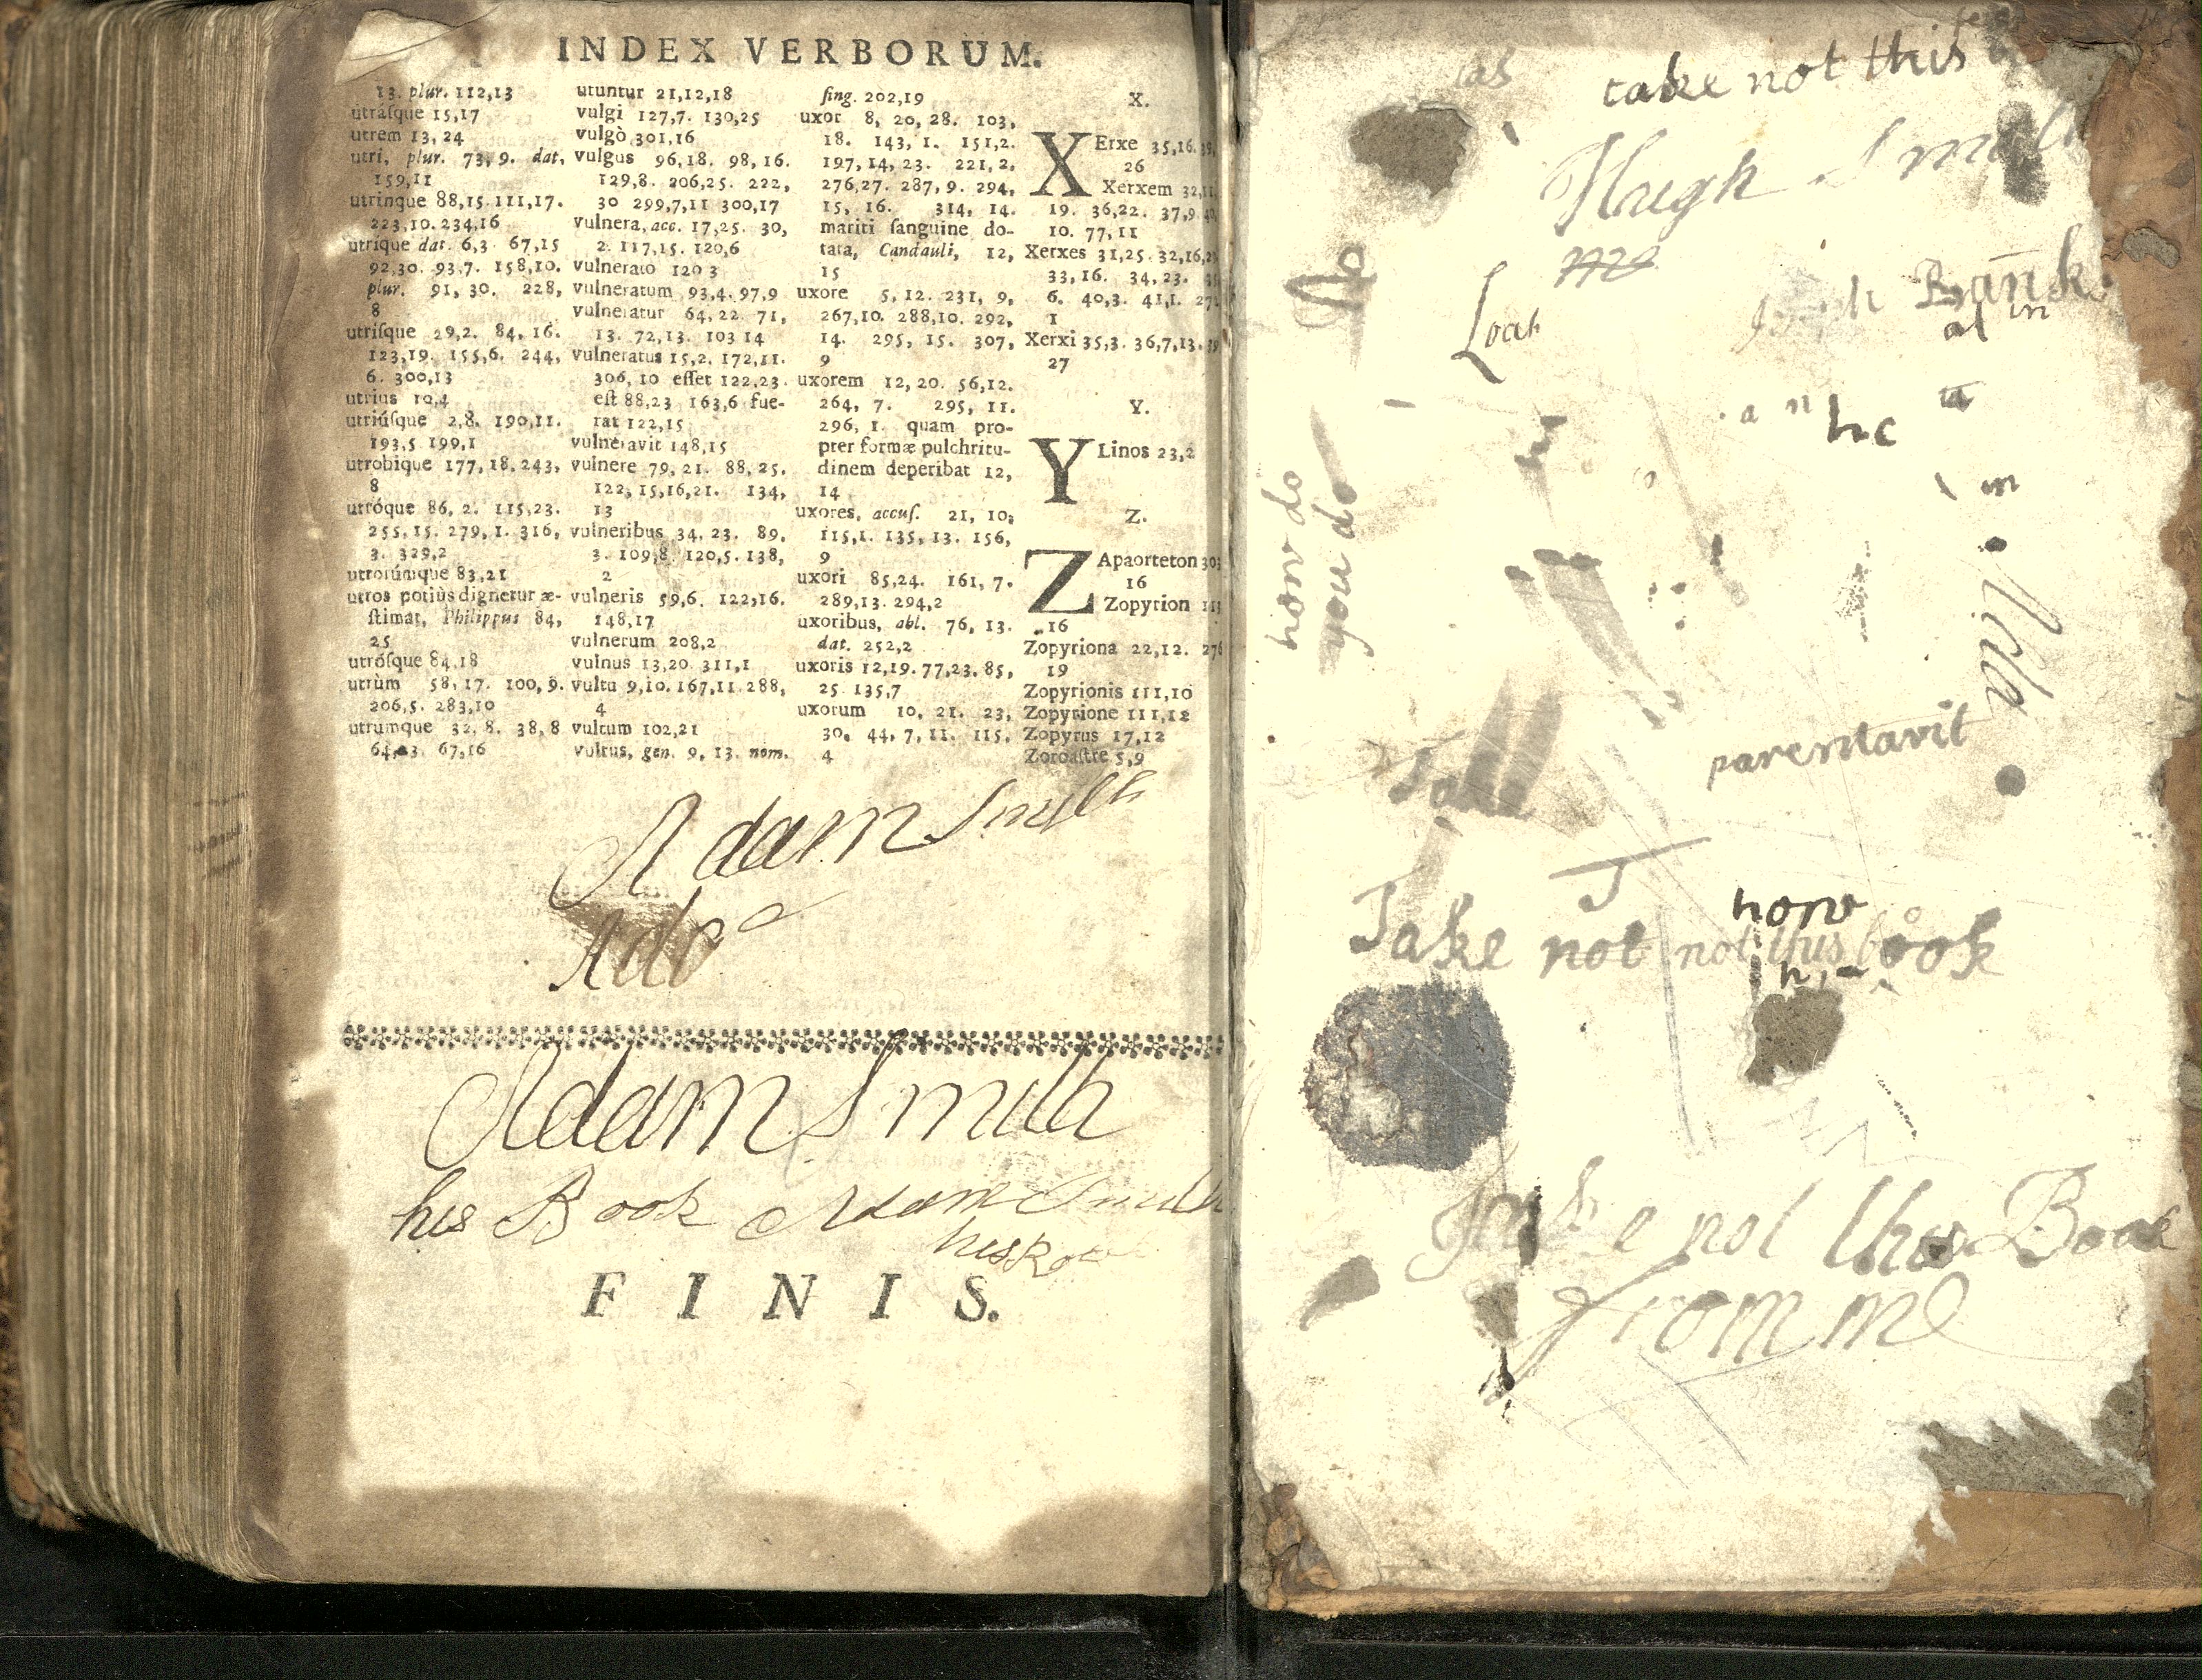 INDEX VERBORUM.
13. plur. 112,13
utráſque 15,17
utrem 13, 24
utri, plur. 73, 9. dat.
159,11
utrinque 88,15. 111,17.
223,10. 234,16
utrique dat. 6,3. 67,15
92,30. 93,7. 158,10.
plur. 91, 30. 228,
8
utriſque 29,2. 84, 16.
123,19. 155,6. 244,
6. 300,13
utrius 10,4
utriúſque 2,8. 190,11.
193,5 199,1
utrobique 177, 18, 243,
8
utróque 86, 2. 115,23.
255, 15. 279, 1. 316,
3. 329,2
utrorúmque 83,21
utros potiùs dignetur æ-
ſtimat, Philippus 84,
25
utróſque 84,18
utrùm 58, 17. 100, 9.
206,5. 283,10
utrumque 32, 8. 38,8
67,16
utuntur 21,12,18
vulgi 127,7. 130,25
vulgò 301,16
vulgus 96,18. 98, 16.
129,8. 206,25. 222,
30 299,7,11 300,17
vulnera, acc. 17,25. 30,
2. 117,15. 120,6
vulnerato 120 3
vulneratum 93,4. 97,9
vulneratur 64, 22. 71,
13. 72,13. 103 14
vulneratus 15,2. 172,11.
306, 10 eſſet 122,23.
eſt 88,23 163,6 fue-
rat 122,15
vulneravit 148,15
vulnere 79, 21. 88, 25.
122, 15,16,21. 134,
13
vulneribus 34, 23. 89,
3. 109,8. 120,5. 138,
2
vulneris 59,6. 122,16.
148,17
vulnerum 208,2
vulnus 13,20 311,1
vultu 9,10. 167,11. 288,
4
vultum 102,21
vultus, gen. 9, 13. nom.
ſing. 202,19
uxor 8, 20, 28. 103,
18. 143, 1. 151,2.
197,14, 23. 221,2.
276,27. 287, 9. 294,
15, 16. 314, 14.
mariti ſanguine do-
tata, Candauli, 12,
15
uxore 5, 12. 231, 9,
267,10. 288,10. 292,
14. 295, 15. 307,
9
uxorem 12, 20. 56,12.
264, 7. 295, 11.
296, 1. quam pro-
pter formæ pulchritu-
dinem deperibat 12,
14
uxores, accuſ. 21, 10,
115,1. 135, 13. 156,
9
uxori 85,24. 161, 7.
289,13. 294,2
uxoribus, abl. 76, 13.
dat. 252,2
uxoris 12,19. 77,23. 85,
25. 135,7
uxorum 10, 21. 23,
30. 44, 7, 11. 115,
4
X.
XErxe 35,16.
26
Xerxem 32,
19. 36,22. 37,9
10. 77,11
Xerxes 31,25. 32,16,
33,16. 34,23.
6. 40,3. 41,1.
1
Xerxi 35,3. 36,7,13.
27
Y.
YLinos 23,2
Z.
ZApaorteton
16
Zopyrion
16
Zopyriona 22,12.
19
Zopyrionis 111,10
Zopyrione 111,12
Zopyrus 17,12
Zoroaſtre 5,9
Adam Smith
Ado
Adam Smith
his Book Adam Smith
his
FINIS.
take not this
Hugh Smith
Do
Bank
al in
a n he
in
how do
you do
parentavit
Take
T
how
Take not not this book
Take not this Book
from me